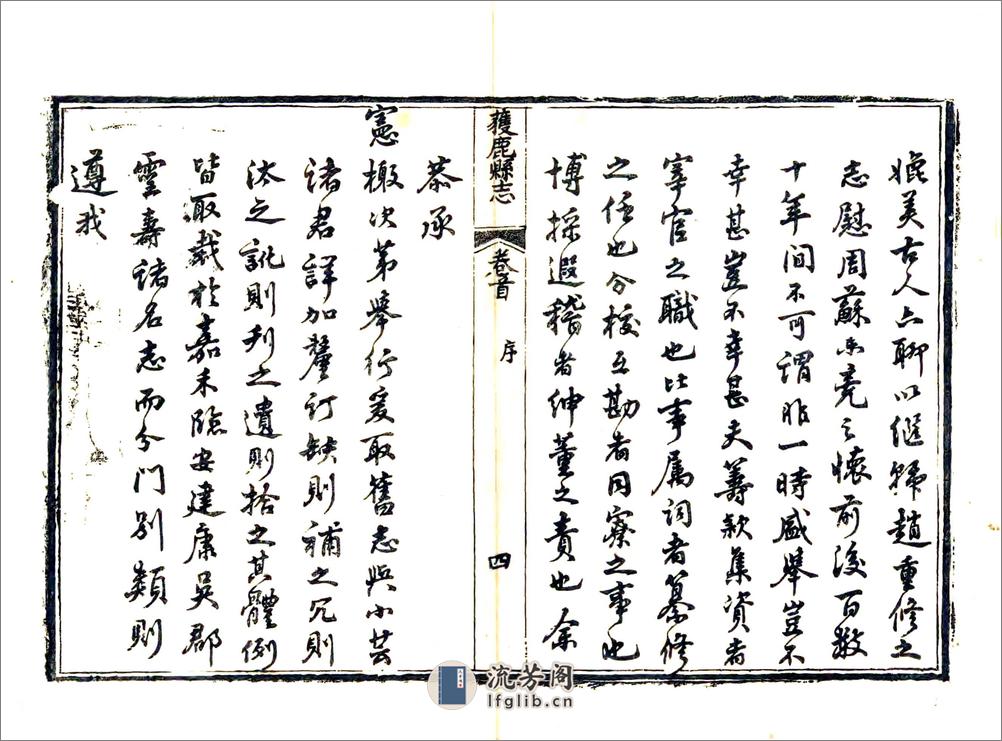 媲美古人亦聊以繼歸趙重修之
志慰周蘇未竟之懷前後百數
十年間不可謂非一時盛舉豈不
幸甚豈不幸甚夫籌款集資者
宰官之職也比事属詞者纂修
之任也分校互勘者同寮之事也
博採遐稽者紳董之責也余
獲鹿縣志
卷首
序
四
恭承
憲檄次第舉行爰取舊志與小芸
諸君詳加釐訂缺則補之冗則
汰之訛則刊之遺則拾之其體例
皆取裁於嘉禾臨安建康吳郡
靈壽諸名志而分門別類則
遵我
流芳阁
lfglib.cn